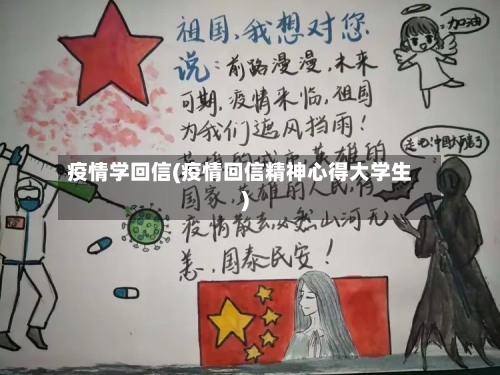 祖国，我想对您
说：前路漫漫，未来
可期，疫情来临，祖国
为我们遮风挡雨！
英雄的
国家，英雄的人民，待
疫情散去，必然山河无
恙，国泰民安！
加油
疫情学回信(疫情回信精神心得大学生
)